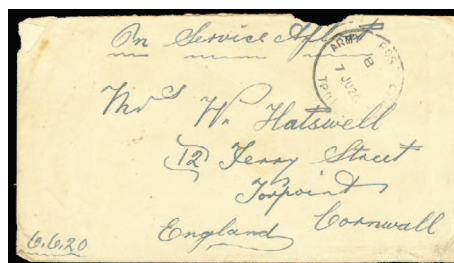 On Service Afloat
ARMY POS
B
7 JU 20
Mrs W. Hatswell
12 Ferry Street
Torpoint
Cornwall
England
6.6.20